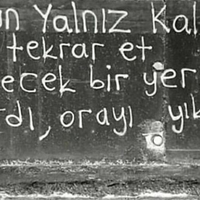 ün Yalnız Kal
tekrar et
ecek bir yer
rdı, orayı yık